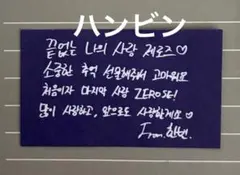 ハンビン
끝없는 나의 사랑 제로즈♡
소중한 추억 선물해줘서 고마워요
처음이자 마지막 사랑 ZEROSE!
많이 사랑하고, 앞으로도 사랑할게요♡
From. 한빈.